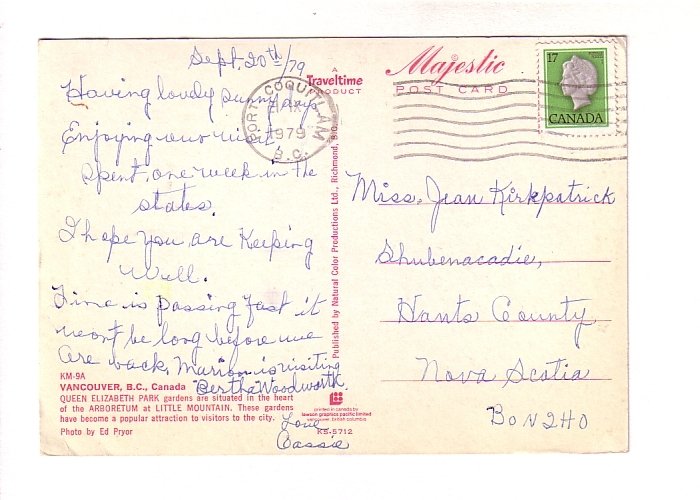 Sept. 20th/79
Having lovely sunny days
Enjoying our visit
Spent one week in the
states.
I hope you are Keeping
well.
Time is passing fast it
won't be long before we
are back, Marion is visiting
Bertha Woodworth.
Love
Cassie
A
Traveltime
PRODUCT
Majestic
POST CARD
PORT COQUITLAM
1979
B.C.
17
CANADA
Miss. Jean Kirkpatrick
Shubenacadie,
Hants County
Nova Scotia
BON 2HO
Published by Natural Color Productions Ltd., Richmond, B.C.
KM-9A
VANCOUVER, B.C., Canada
QUEEN ELIZABETH PARK gardens are situated in the heart
of the ARBORETUM at LITTLE MOUNTAIN. These gardens
have become a popular attraction to visitors to the city.
Photo by Ed Pryor
printed in canada by
lawson graphics pacific limited
vancouver, british columbia
KS-5712